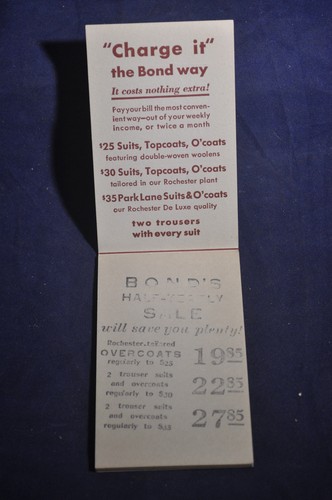 "Charge it"
the Bond way
It costs nothing extra!
Pay your bill the most conven-
ient way—out of your weekly
income, or twice a month
$25 Suits, Topcoats, O'coats
featuring double-woven woolens
$30 Suits, Topcoats, O'coats
tailored in our Rochester plant
$35 Park Lane Suits & O'coats
our Rochester De Luxe quality
two trousers
with every suit
BOND'S
HALF-YEARLY
SALE
will save you plenty!
Rochester-tailored
OVERCOATS 19 85
regularly to $25
2 trouser suits
and overcoats 22 85
regularly to $30
2 trouser suits
and overcoats 27 85
regularly to $35